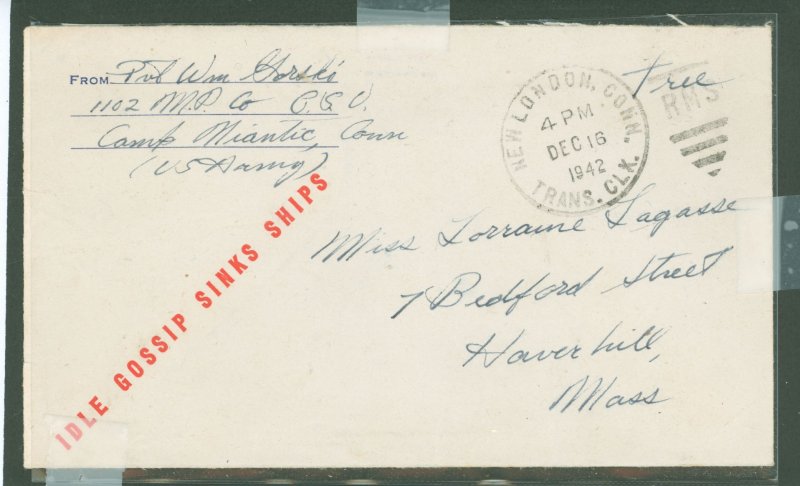 FROM Pvt Wm Gorski
1102 M.P. Co C.S.U.
Camp Niantic, Conn
(US Army)
NEW LONDON, CONN.
4 PM
DEC 16
1942
TRANS. CLK.
Free
RMS
IDLE GOSSIP SINKS SHIPS
Miss Lorraine Lagasse
7 Bedford Street
Haverhill,
Mass